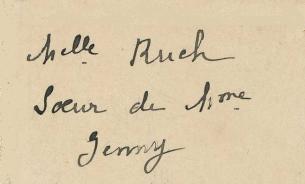 Melle Ruch
Sœur de Mme
Jenny